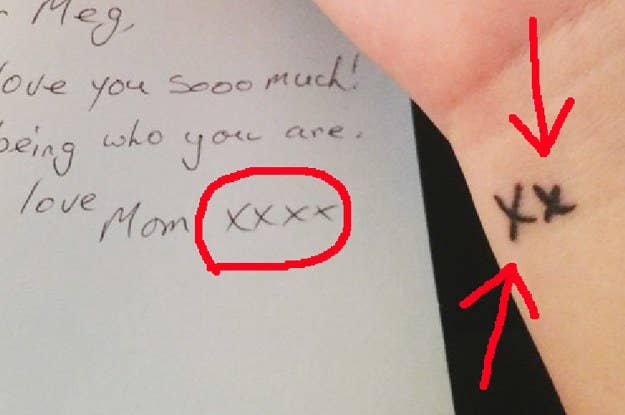 Meg,
love you sooo much!
being who you are.
love Mom xxxx
xx